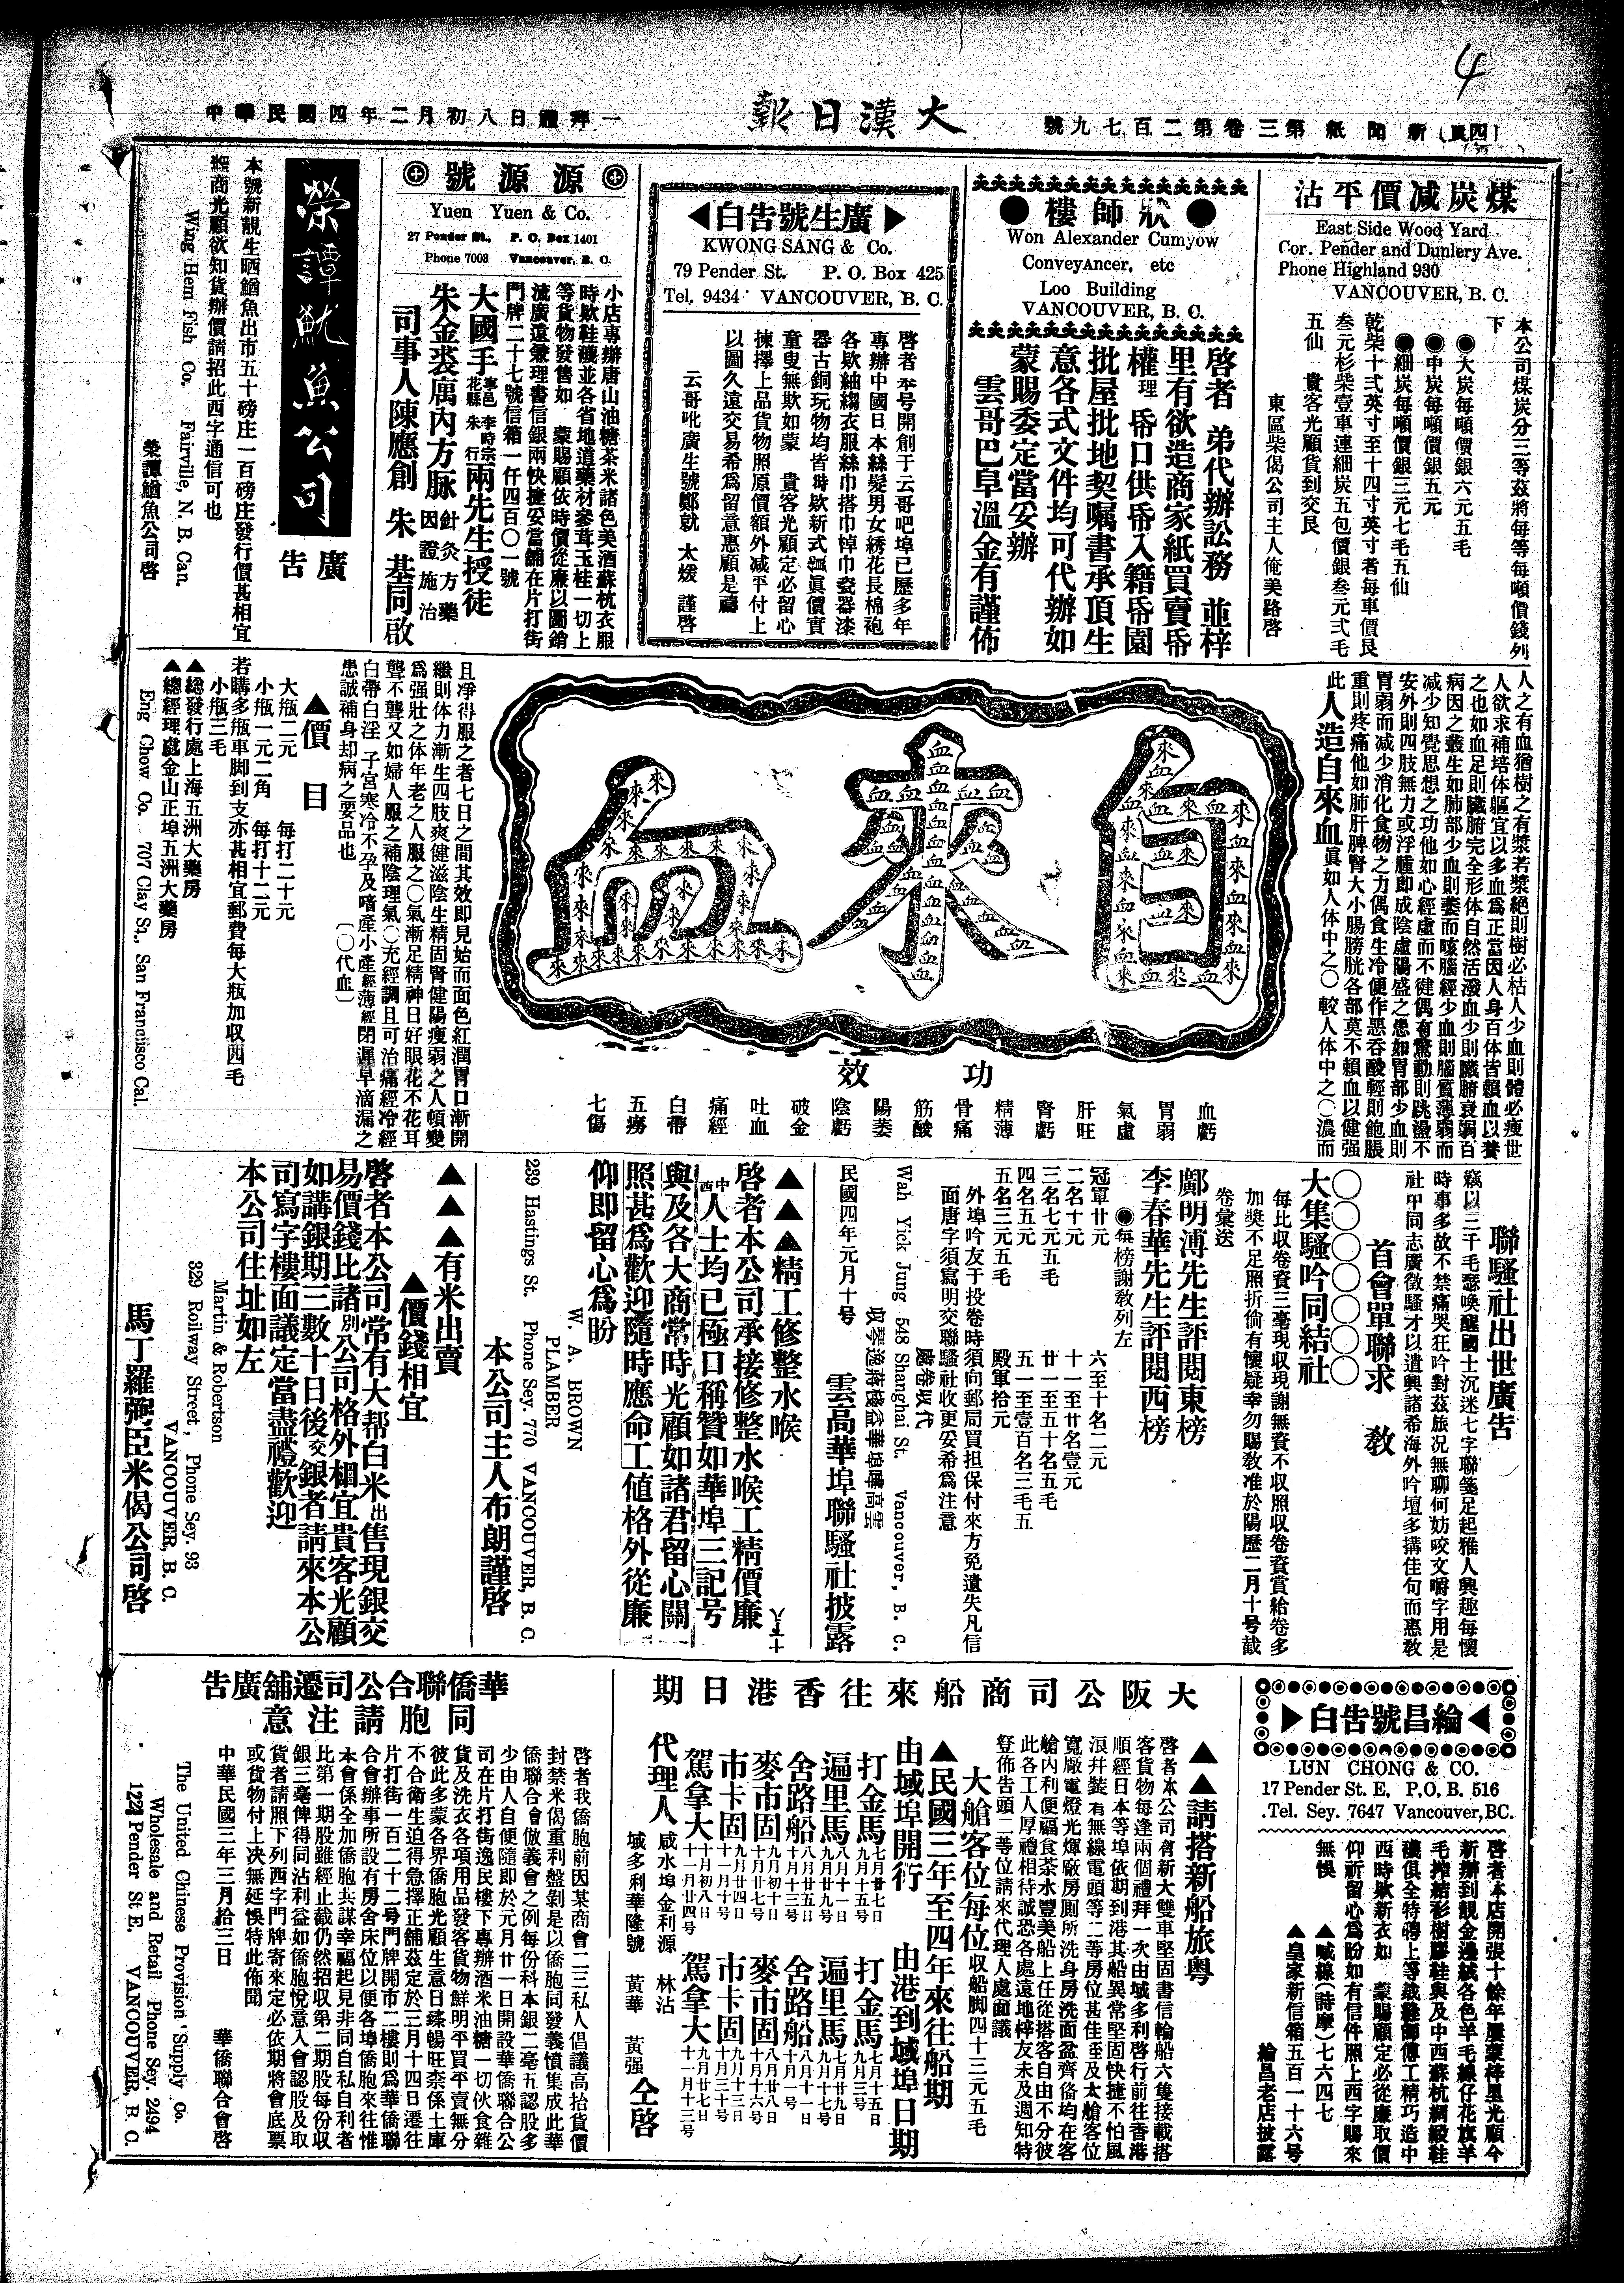 4
中華民國四年二月初八日禮拜一
大漢日報
新聞紙第三卷第二百七九號 (四頁)
煤炭減價平沽
East Side Wood Yard
Cor. Pender and Dunlery Ave.
Phone Highland 930
VANCOUVER, B. C.
本公司煤炭分三等茲將每等每噸價錢列
下
◉大炭每噸價銀六元五毛
◉中炭每噸價銀五元
◉細炭每噸價銀三元七毛五仙
乾柴十弍英寸至十四寸英寸者每車價艮
叁元杉柴壹車連細炭五包價銀叁元弍毛
五仙 貴客光顧貨到交艮
東區柴偈公司主人俺美路啓
狀師樓
Won Alexander Cumyow
ConveyAncer. etc
Loo Building
VANCOUVER, B. C.
啓者 弟代辦訟務 並梓
里有欲造商家紙買賣畨
權理畨口供畨入籍畨園
批屋批地契嘱書承頂生
意各式文件均可代辦如
蒙賜委定當妥辦
雲哥巴阜溫金有謹佈
廣生號告白
KWONG SANG & Co.
79 Pender St. P. O. Box 425
Tel. 9434 VANCOUVER, B. C.
啓者 本号開創于云哥吧埠已歷多年
專辦中國日本絲髮男女綉花長棉袍
各欵紬縐衣服絲巾搭巾悼巾瓷器漆
器古銅玩物均皆時欵新式貨眞價實
童叟無欺如蒙 貴客光顧定必留心
揀擇上品貨物照原價額外减平付上
以圖久遠交易希爲留意惠顧是禱
云哥吡廣生號鄭就 太嫒 謹啓
源源號
Yuen Yuen & Co.
27 Pender St., P. O. Box 1401
Phone 7003 Vancouver, B. C.
小店專辦唐山油糖茶米諸色美酒蘇杭衣服
時欵鞋襪並各省地道藥材參茸玉桂一切上
等貨物發售如 蒙賜顧依時價從廉以圖銷
流廣遠兼理書信銀兩快捷妥當舖在片打街
門牌二十七號信箱一仟四百〇一號
大國手 寧邑 李時宗 花縣 朱 行 兩先生授徒
朱金裘厲內方脉 針灸方藥 因證施治
司事人 陳應創 朱 基同啟
榮譚魷魚公司
廣告
本號新靚生晒鰌魚出市五十磅庄一百磅庄發行價甚相宜
經商光顧欲知貨辦價請招此西字通信可也
Wing Hem Fish Co. Fairville, N. B. Can.
榮譚鰌魚公司啓
人之有血猶樹之有漿若漿絕則樹必枯人少血則體必瘦世
人欲求補培体軀宜以多血爲正當因人身百体皆賴血以養
之也如血足則臟腑完全形体自然活潑血少則臟腑衰弱百
病因之叢生如肺部少血則萎而咳腦經少血則腦質薄弱而
减少知覺思想之功他如心經虛而不健偶有驚動則跳盪不
安外則四肢無力或浮腫即成陰虛陽盛之患如胃部少血則
胃弱而减少消化食物之力偶食生冷便作悪吞酸輕則飽脹
重則疼痛他如肺肝脾腎大小腸膀胱各部莫不賴血以健强
此人造自來血眞如人体中之〇 較人体中之〇濃而
自來血
功效
血虧
胃弱
氣虛
肝旺
腎虧
精薄
骨痛
筋酸
陽萎
陰虧
破金
吐血
痛經
白帶
五癆
七傷
且淨得服之者七日之間其效即見始而面色紅潤胃口漸開
繼則体力漸生四肢爽健滋陰生精固腎健陽瘦弱之人頓變
爲强壯之体年老之人服之〇氣漸足精神日好眼花不花耳
聾不聾又如婦人服之補陰理氣〇充經調且可治痛經冷經
白帶白淫 子宮寒冷不孕及嗜產小產經薄經閉遲早滴漏之
患誠補身却病之要品也 〔〇代血〕
▲價目
大瓶二元 每打二十元
小瓶一元二角 每打十二元
若購多瓶車脚到支亦甚相宜郵費每大瓶加収四毛
小瓶三毛
▲総發行處上海五洲大藥房
▲總經理處金山正埠五洲大藥房
Eng Chow Co. 707 Clay St., San Francisco Cal.
聯騷社出世廣告
竊以三千毛瑟喚醒國士沉迷七字聯箋足起雅人興趣每懷
時事多故不禁痛哭狂吟對茲旅況無聊何妨咬文嚼字用是
社甲同志廣徵騷才以遣興諸希海外吟壇多搆佳句而惠敎
首會單聯求 敎
〇〇〇〇〇〇〇
大集騷吟同結社
每比収卷資三毫現収現謝無資不収照収卷資賞給卷多
加獎不足照折倘有懷疑幸勿賜敎准於陽歷二月十号截
卷彙送
鄺明溥先生評閱東榜
李春華先生評閱西榜
◉每榜謝敎列左
冠軍廿元 六至十名二元
二名十元 十一至廿名壹元
三名七元五毛 廿一至五十名五毛
四名五元 五一至壹百名三毛五
五名三元五毛 殿軍拾元
外埠吟友于投卷時須向郵局買担保付來方免遺失凡信
面唐字須寫明交聯騷社收更妥希爲注意
處卷収代
Wah Yick Jung 548 Shanghai St. Vancouver, B. C.
民國四年元月十号 雲高華埠聯騷社披露
▲▲▲精工修整水喉
啓者本公司承接修整水喉工精價廉
中西人士均已極口稱贊如華埠三記号
與及各大商常時光顧如諸君留心關
照甚爲歡迎隨時應命工値格外從廉
仰即留心爲盼
W. A. BROWN
PLAMBER
239 Hastings St. Phone Sey. 770 VANCOUVER, B. C.
本公司主人布朗謹啓
▲▲▲有米出賣
▲價錢相宜
啓者本公司常有大帮白米出售現銀交
易價錢比諸別公司格外櫚宜貴客光顧
如講銀期三數十日後交銀者請來本公
司寫字樓面議定當盡禮歡迎
本公司住址如左
Martin & Robertson
329 Roilway Street, Phone Sey. 93
VANCOUVER, B. C.
馬丁羅弼臣米偈公司啓
綸昌號告白
LUN CHONG & CO.
17 Pender St. E, P.O, B. 516
Tel. Sey. 7647 Vancouver, BC.
啓者本店開張十餘年屢蒙梓里光顧今
新辦到靚金邊絨各色羊毛線仔花旗羊
毛搾結彩樹膠鞋與及中西蘇杭綢緞鞋
襪俱全特聘上等裁縫師傅工精巧造中
西時欵新衣如 蒙賜顧定必從廉取價
仰祈留心爲盼如有信件照上西字賜來
無悞
▲喊線(詩摩)七六四七
▲皇家新信箱五百一十六号
綸昌老店披露
大阪公司商船來往香港日期
▲▲請搭新船旅粵
啓者本公司有新大雙車堅固書信輪船六隻接載搭
客貨物每逢兩個禮拜一次由域多利啓行前往香港
順經日本等埠依期到港其船異常堅固快捷不怕風
浪幷裝有無線電頭等二等房位甚佳至及太艙客位
寬厰電燈光煇厰房厠所洗身房洗面盆齊俻均在客
艙內利便福食茶水豐美船上任從搭客自由不分彼
此各工人厚禮相待誠恐各處遠地梓友未及週知特
登佈告頭二等位請來代理人處面議
大艙客位每位収船脚四十三元五毛
▲民國三年至四年來往船期
由域埠開行 由港到域埠日期
打金馬 七月廿七日 打金馬 七月十五日
遍里馬 遍里馬
舍路船 舍路船
麥市固 麥市固
市卡固 市卡固
駕拿大 駕拿大
代理人 咸水埠金利源 林沾 域多利華隆號 黃華 黃强 仝啓
華僑聯合公司遷舖廣告
同胞請注意
啓者我僑胞前因某商會二三私人倡議高抬貨價
封禁米偈重利盤剝是以僑胞同發義憤集成此華
僑聯合會倣義會之例每份科本銀二毫五認股多
少由人自便隨即於元月廿一日開設華僑聯合公
司在片打街逸民樓下專辦酒米油糖一切伙食雜
貨及洗衣各項用品發客貨物鮮明平買平賣無分
彼此多蒙各界僑胞光顧生意日臻暢旺奈係土庫
不合衛生迫得急擇正舖茲定於三月十四日遷往
片打街一百二十二号門牌開市二樓則爲華僑聯
合會辦事所設有房舍床位以便各埠僑胞來往惟
本會係全加僑胞共謀幸福起見非同自私自利者
比第一期股雖經止截仍然招収第二期股每份収
銀三毫俾得同沾利益如僑胞悅意入會認股及取
貨者請照下列西字門牌寄來定必依期將會底票
或貨物付上决無延悞特此佈聞
中華民國三年三月拾三日 華僑聯合會啓
The United Chinese Provision Supply Co.
Wholesale and Retail Phone Sey. 2494
122 Pender St E. VANCOUVER, B. C.